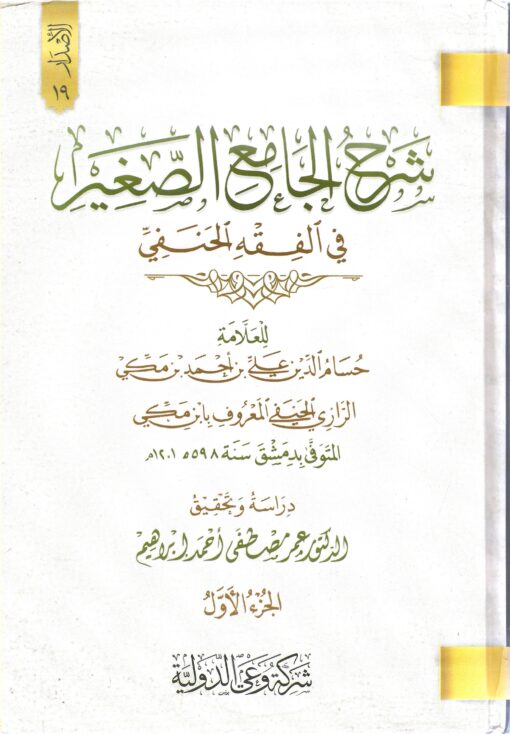 الإصدار ١٩
شَرْحُ الجَامِعِ الصَّغِيرِ
فِي الفِقْهِ الحَنَفِيِّ
لِلعَلَّامَةِ
حُسَامُ الدِّيْن عَلِيّ بْن أحْمَد بْن مَكِّي
الرَّازِي الحَنَفِي المَعْرُوف بِابْن مَكِّي
المتَوَفَّى بِدِمَشْقَ سَنَة ٥٩٨ه ١٢٠١م
دِرَاسَةُ وَتَحْقِيقُ
الدكتور عمر مصطفى أحمد إبراهيم
الجُزْءُ الأَوَّلُ
شَركَةُ وَعْي الدَّوليَّة